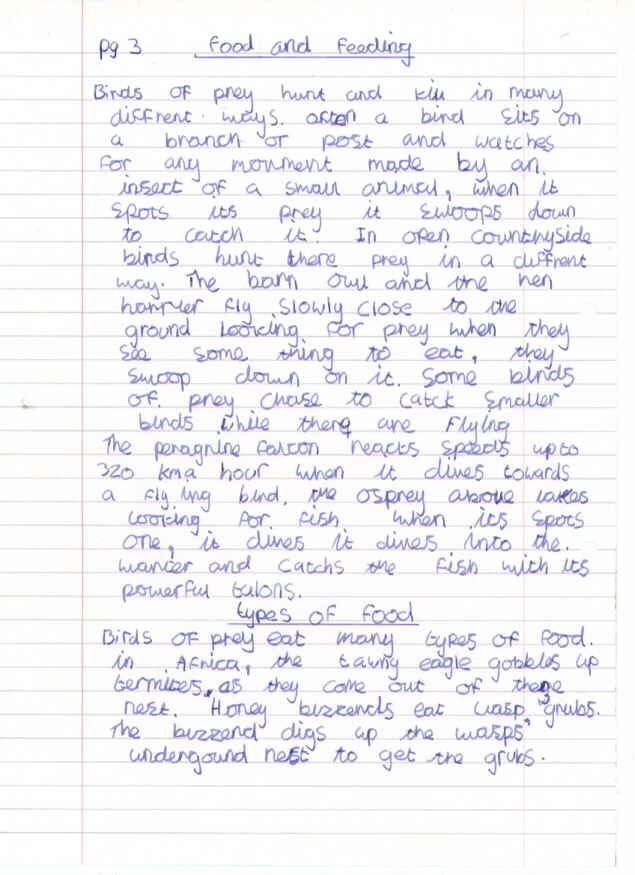 pg 3 Food and Feeding
Birds of prey hunt and kill in many
diffrent ways. often a bird sits on
a branch or post and watches
For any movment made by an
insect of a small animal, when it
spots its prey it swoops down
to catch it. In open countryside
birds hunt there prey in a diffrent
way. The barn owl and the hen
harrier fly slowly close to the
ground looking for prey when they
see some thing to eat, they
swoop down on it. Some birds
of prey chase to catch smaller
birds while there are flying
The peragrine falcon reacts speeds up to
320 km a hour when it dives towards
a flying bird. the osprey above lakes
looking for fish when its spots
one, it dives it dives into the.
wanter and catchs the fish with its
powerful talons.
types of food
Birds of prey eat many types of food.
in Africa, the tawny eagle gobbles up
termites, as they come out of there
nest. Honey buzzends eat wasp grubs.
The buzzend digs up the wasps
undengound nest to get the grubs.